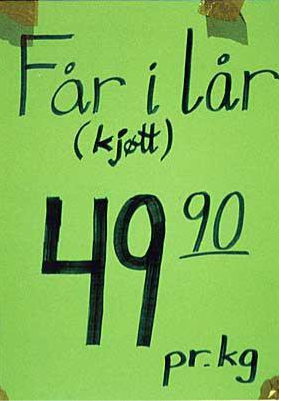 Får i lår
(kjøtt)
49 90
pr.kg